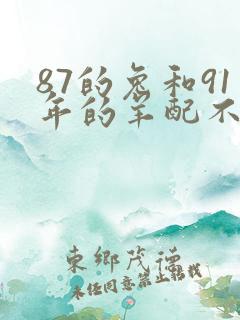 87的兔和91
年的羊配不
東鄉茂德
未经同意禁止转载